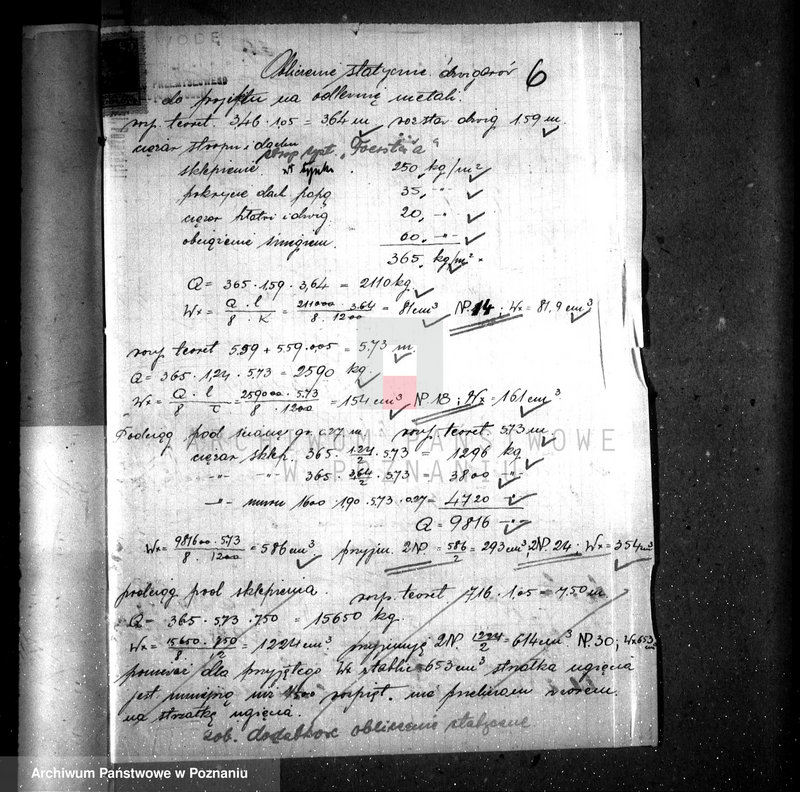 Obliczenie statyczne dźwigarów 6
do projektu na odlewnię metali.
rozp. teoret. 346 · 1.05 = 364 m rozstaw dźwig. 1.59 m.
ciężar stropu i dachu
strop syst. "Foerstera"
sklepienie . 250 kg/m²
pokrycie dach papą 35, -"-
ciężar płatwi i dźwig. 20, -"-
obciążenie śniegiem. 60, -"-
365, kg/m².
Q = 365 · 1,59 · 3,64 = 2110 kg.
Wx = Q · l / 8 · K = 211000 · 3.64 / 8 · 1200 = 81 cm³ № 14 ; Wx = 81,9 cm³
rozp. teoret 5.59 + 5.59 · 0,05 = 5.73 m.
Q = 365 · 1,24 · 5.73 = 2590 kg.
Wx = Q · l / 8 τ = 259000 · 5.73 / 8 · 1200 = 154 cm³ № 18 ; Wx = 161 cm³
Podciąg pod ścianę gr. 0.27 m rozp. teoret 5.73 m
ciężar sklep. 365 · 1.24/2 · 5.73 - 1296 kg.
-"- -"- 365 · 3,64/2 · 5.73 - 3800 -"-
-"- muru 1600 · 1.90 · 5.73 · 0.27 = 4720 -"-
Q = 9816 -"-
Wx = 981600 · 5.73 / 8 · 1200 = 586 cm³. przyjm. 2№ = 586/2 = 293 cm³ 2№ 24 ; Wx = 354 cm³
podciąg pod sklepienia. rozp. teoret 7.16 · 1.05 = 7.50 m
Q = 365 · 5.73 · 7.50 = 15650 kg.
Wx = 15650 · 750 / 8 · 12 = 1224 cm³. przyjmuję 2№. 1224/2 = 614 cm³ № 30 ; Wx 653
ponieważ dla przyjętego Wx stablic 653 cm³ strzałka ugięcia
jest mniejszą niż 1/500 rozpięt.
na strzałkę ugięcia.
zob. dodatkowe obliczenie statyczne
ARCHIWUM PAŃSTWOWE
W POZNANIU
Archiwum Państwowe w Poznaniu